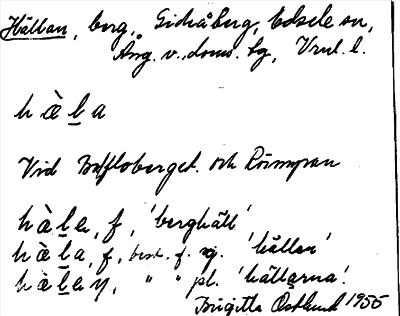 Hällan, berg, Gideåberg, Edsele sn,
Ång. v. doms. tg, Vrul. l.
h à l̲ a
Vid Baftoberget och Rörmyran
h à l̲ e, f, 'berghäll'
h à l̲ a, f, best. f. sg. 'hällen'
h à l̲ e n, " " pl. 'hällarna'.
Birgitta Östlund 1955